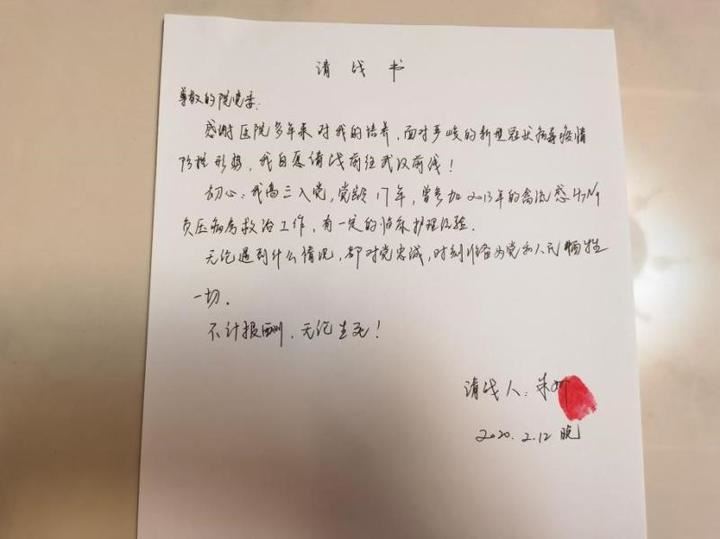 请战书
尊敬的院党委:
感谢医院多年来对我的培养,面对严峻的新型冠状病毒疫情
防控形势,我自愿请战前往武汉前线!
初心:我高三入党,党龄17年,曾参加2013年的禽流感H7N9
负压病房救治工作,有一定的临床护理经验.
无论遇到什么情况,都对党忠诚,时刻准备为党和人民牺牲
一切.
不计报酬,无论生死!
请战人:朱
2020.2.12 晚